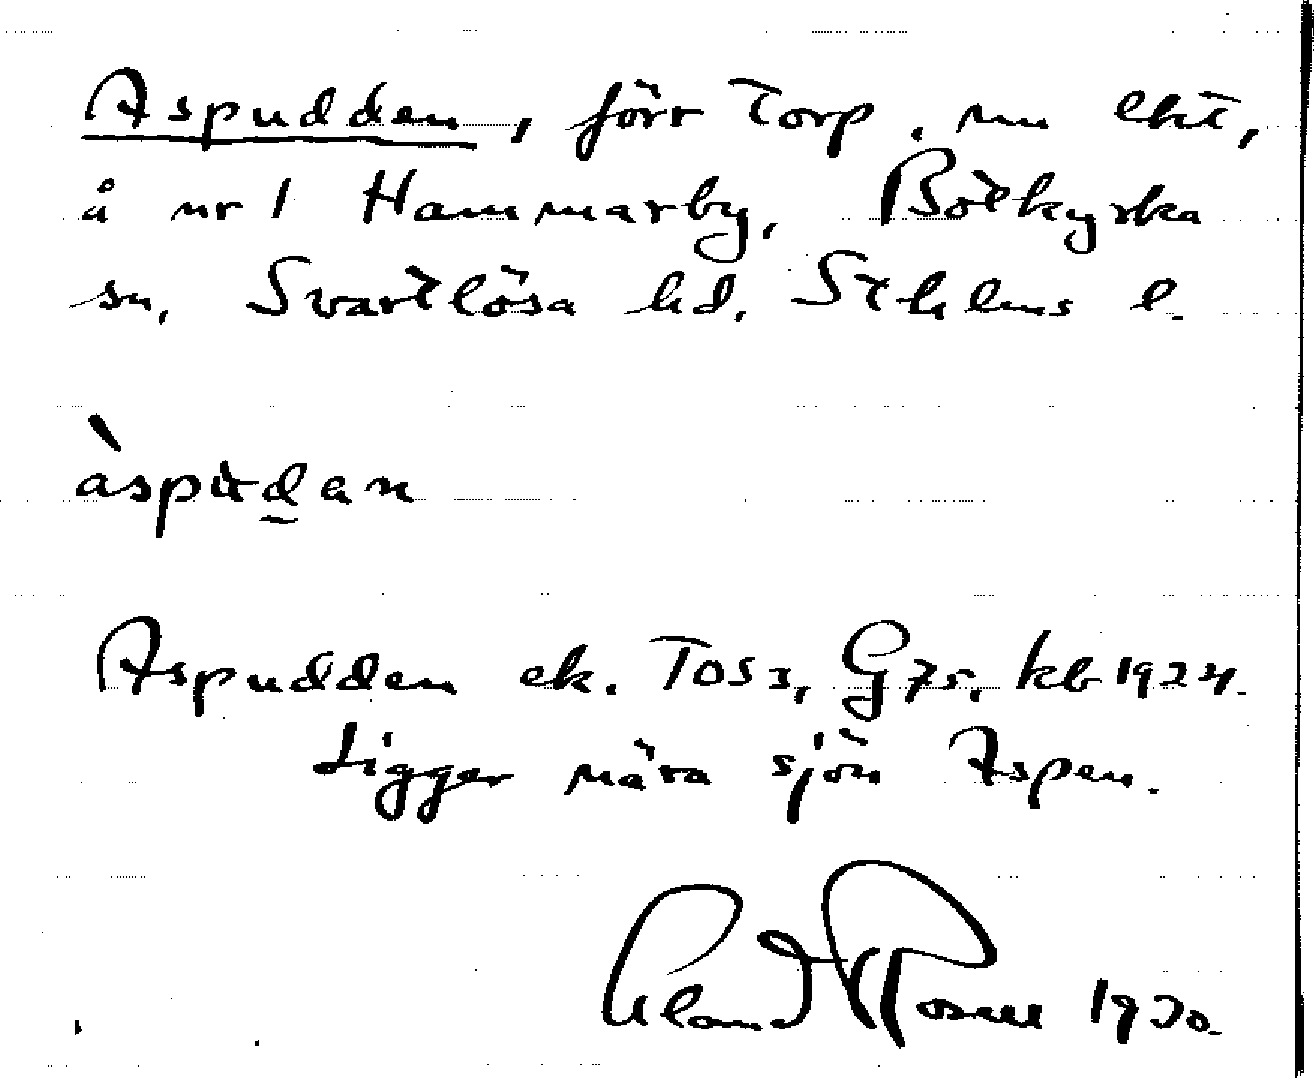 Aspudden, förr torp, nu lht,
å nr 1 Hammarby, Botkyrka
sn, Svartlösa hd. Sthlms l.
àspudan
Aspudden ek. T0S3, G75, kb 1924.
Ligger nära sjön Aspen.
1970.